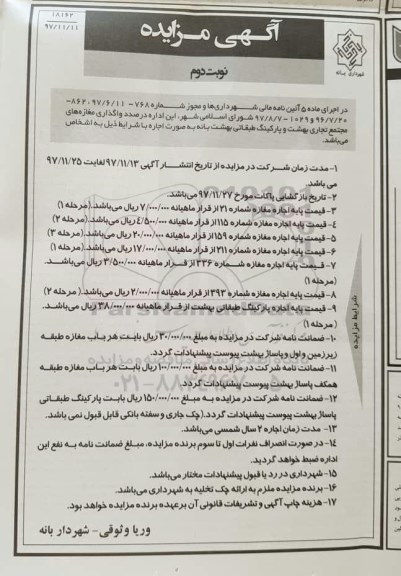 ۱۸۱۶۲
۹۷/۱۱/۱۱
آگهی مزایده
نوبت دوم
شهرداری بانه
در اجرای ماده ۵ آئین نامه مالی شهرداری‌ها و مجوز شماره ۷۶۸- ۸۶۲-۹۷/۶/۱۱
۹۶/۷/۲۰ ۱۰۲۹-۹۷/۸/۷ شورای اسلامی شهر، این اداره درصدد واگذاری مغازه‌های
مجتمع تجاری بهشت و پارکینگ طبقاتی بهشت بانه به صورت اجاره با شرایط ذیل به اشخاص
می‌باشد.
۱- مدت زمان شرکت در مزایده از تاریخ انتشار آگهی ۹۷/۱۱/۱۳ لغایت ۹۷/۱۱/۲۵
می باشد.
۲- تاریخ بازگشایی پاکات مورخ ۹۷/۱۱/۲۷ می‌باشد.
۳- قیمت پایه اجاره مغازه شماره ۲۱ از قرار ماهیانه ۷/۰۰۰/۰۰۰ ریال می‌باشد.(مرحله ۱)
۴- قیمت پایه اجاره مغازه شماره ۱۱۵ از قرار ماهیانه ۴/۵۰۰/۰۰۰ ریال می‌باشد.(مرحله ۲)
۵- قیمت پایه اجاره مغازه شماره ۱۵۹ از قرار ماهیانه ۲۰/۰۰۰/۰۰۰ ریال می‌باشد.(مرحله ۳)
۶- قیمت پایه اجاره مغازه شماره ۲۱۱ از قرار ماهیانه ۱۷/۰۰۰/۰۰۰ ریال می‌باشد.(مرحله ۱)
۷- قیمت پایه اجاره مغازه شماره ۳۳۶ از قرار ماهیانه ۳/۵۰۰/۰۰۰ ریال می‌باشد.
(مرحله ۱)
۸- قیمت پایه اجاره مغازه شماره ۳۹۳ از قرار ماهیانه ۲/۰۰۰/۰۰۰ ریال می‌باشد.(مرحله ۲)
۹- قیمت پایه اجاره پارکینگ طبقاتی بهشت از قرار ماهیانه ۳۸/۰۰۰/۰۰۰ ریال می‌باشد.
(مرحله ۱)
۱۰- ضمانت نامه شرکت در مزایده به مبلغ ۲۰/۰۰۰/۰۰۰ ریال بابت هر باب مغازه طبقه
زیرزمین و اول و پاساژ بهشت پیوست پیشنهادات گردد.
۱۱- ضمانت نامه شرکت در مزایده به مبلغ ۱۰۰/۰۰۰/۰۰۰ ریال بابت هر باب مغازه طبقه
همکف پاساژ بهشت پیوست پیشنهادات گردد.
۱۲- ضمانت نامه شرکت در مزایده به مبلغ ۱۵۰/۰۰۰/۰۰۰ ریال بابت پارکینگ طبقاتی
پاساژ بهشت پیوست پیشنهادات گردد.(چک جاری و سفته بانکی قابل قبول نمی باشد.
۱۳- مدت زمان اجاره ۲ سال شمسی می‌باشد.
۱۴- در صورت انصراف نفرات اول تا سوم برنده مزایده، مبلغ ضمانت نامه به نفع این
اداره ضبط خواهد گردید.
۱۵- شهرداری در رد یا قبول پیشنهادات مختار می‌باشد.
۱۶- برنده مزایده ملزم به ارائه چک تخلیه به شهرداری می‌باشد.
۱۷- هزینه چاپ آگهی و تشریفات قانونی آن برعهده برنده مزایده خواهد بود.
وریا وثوقی- شهردار بانه
شرایط مزایده